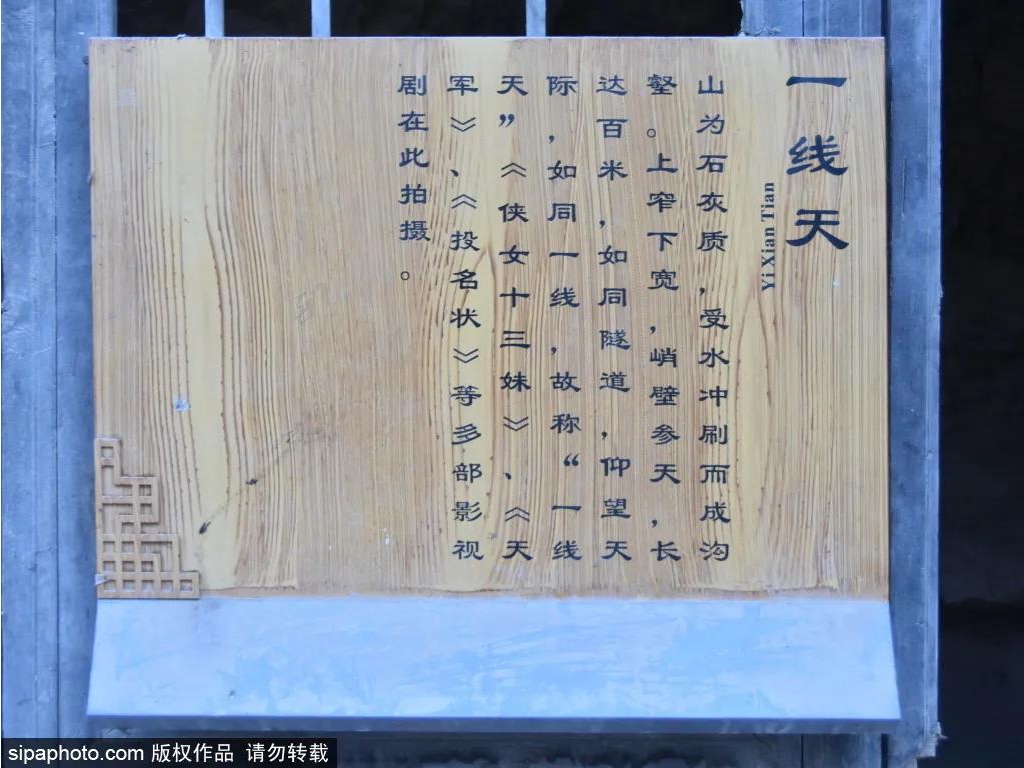 一线天
Yi Xian Tian
山为石灰质,受水冲刷而成沟
壑。上窄下宽,峭壁参天,长
达百米,如同隧道,仰望天
际,如同一线,故称“一线
天”《侠女十三妹》、《天
军》、《投名状》等多部影视
剧在此拍摄。
sipaphoto.com 版权作品 请勿转载